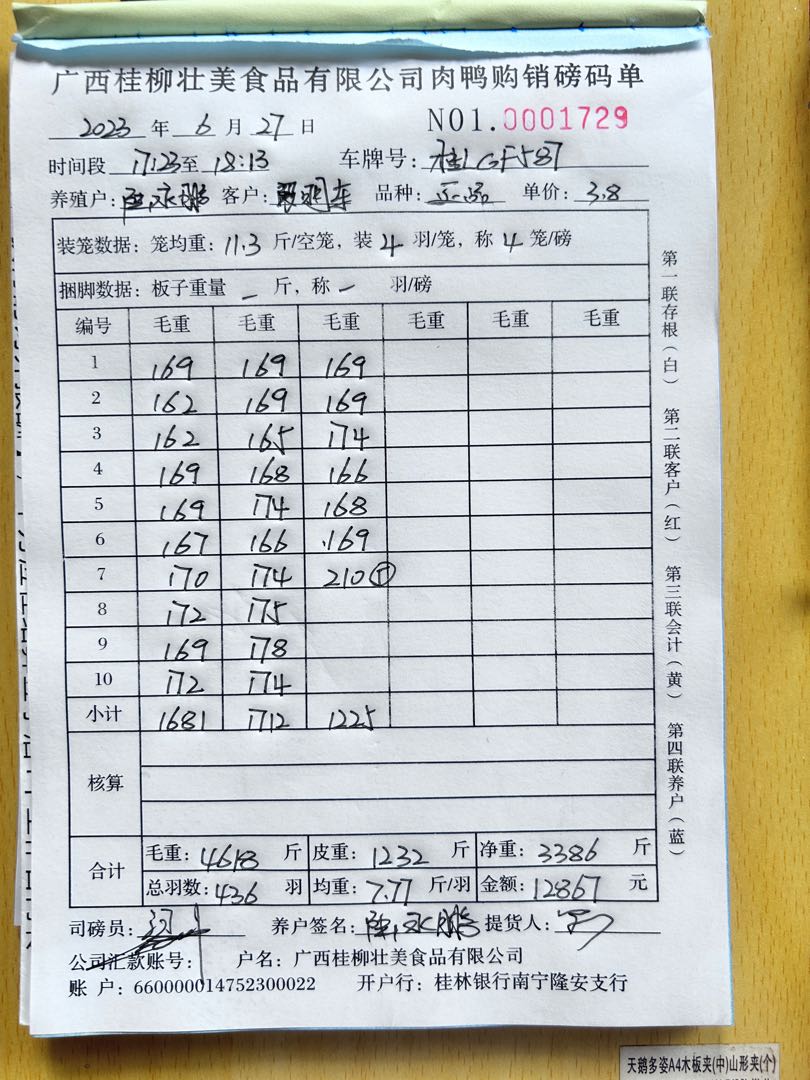 广西桂柳壮美食品有限公司肉鸭购销磅码单
2023 年 6 月 27 日 NO1.0001729
时间段 17:23至 18:13 车牌号: 桂LGF587
养殖户: 客户: 品种: 正品 单价: 3.8
装笼数据: 笼均重: 11.3 斤/空笼, 装 4 羽/笼, 称 4 笼/磅
捆脚数据: 板子重量 — 斤, 称 — 羽/磅
编号 毛重 毛重 毛重 毛重 毛重 毛重
1 169 169 169
2 162 169 169
3 162 165 174
4 169 168 166
5 169 174 168
6 167 166 169
7 170 174 210⑤
8 172 175
9 169 178
10 172 174
小计 1681 1712 1225
核算
合计 毛重: 4618 斤 皮重: 1232 斤 净重: 3386 斤
总羽数: 436 羽 均重: 7.77 斤/羽 金额: 12867 元
司磅员: 养户签名: 提货人:
公司汇款账号: 户名: 广西桂柳壮美食品有限公司
账 户: 660000014752300022 开户行: 桂林银行南宁隆安支行
第一联存根(白) 第二联客户(红) 第三联会计(黄) 第四联养户(蓝)
天鹅多姿A4木板夹(中)山形夹(个)